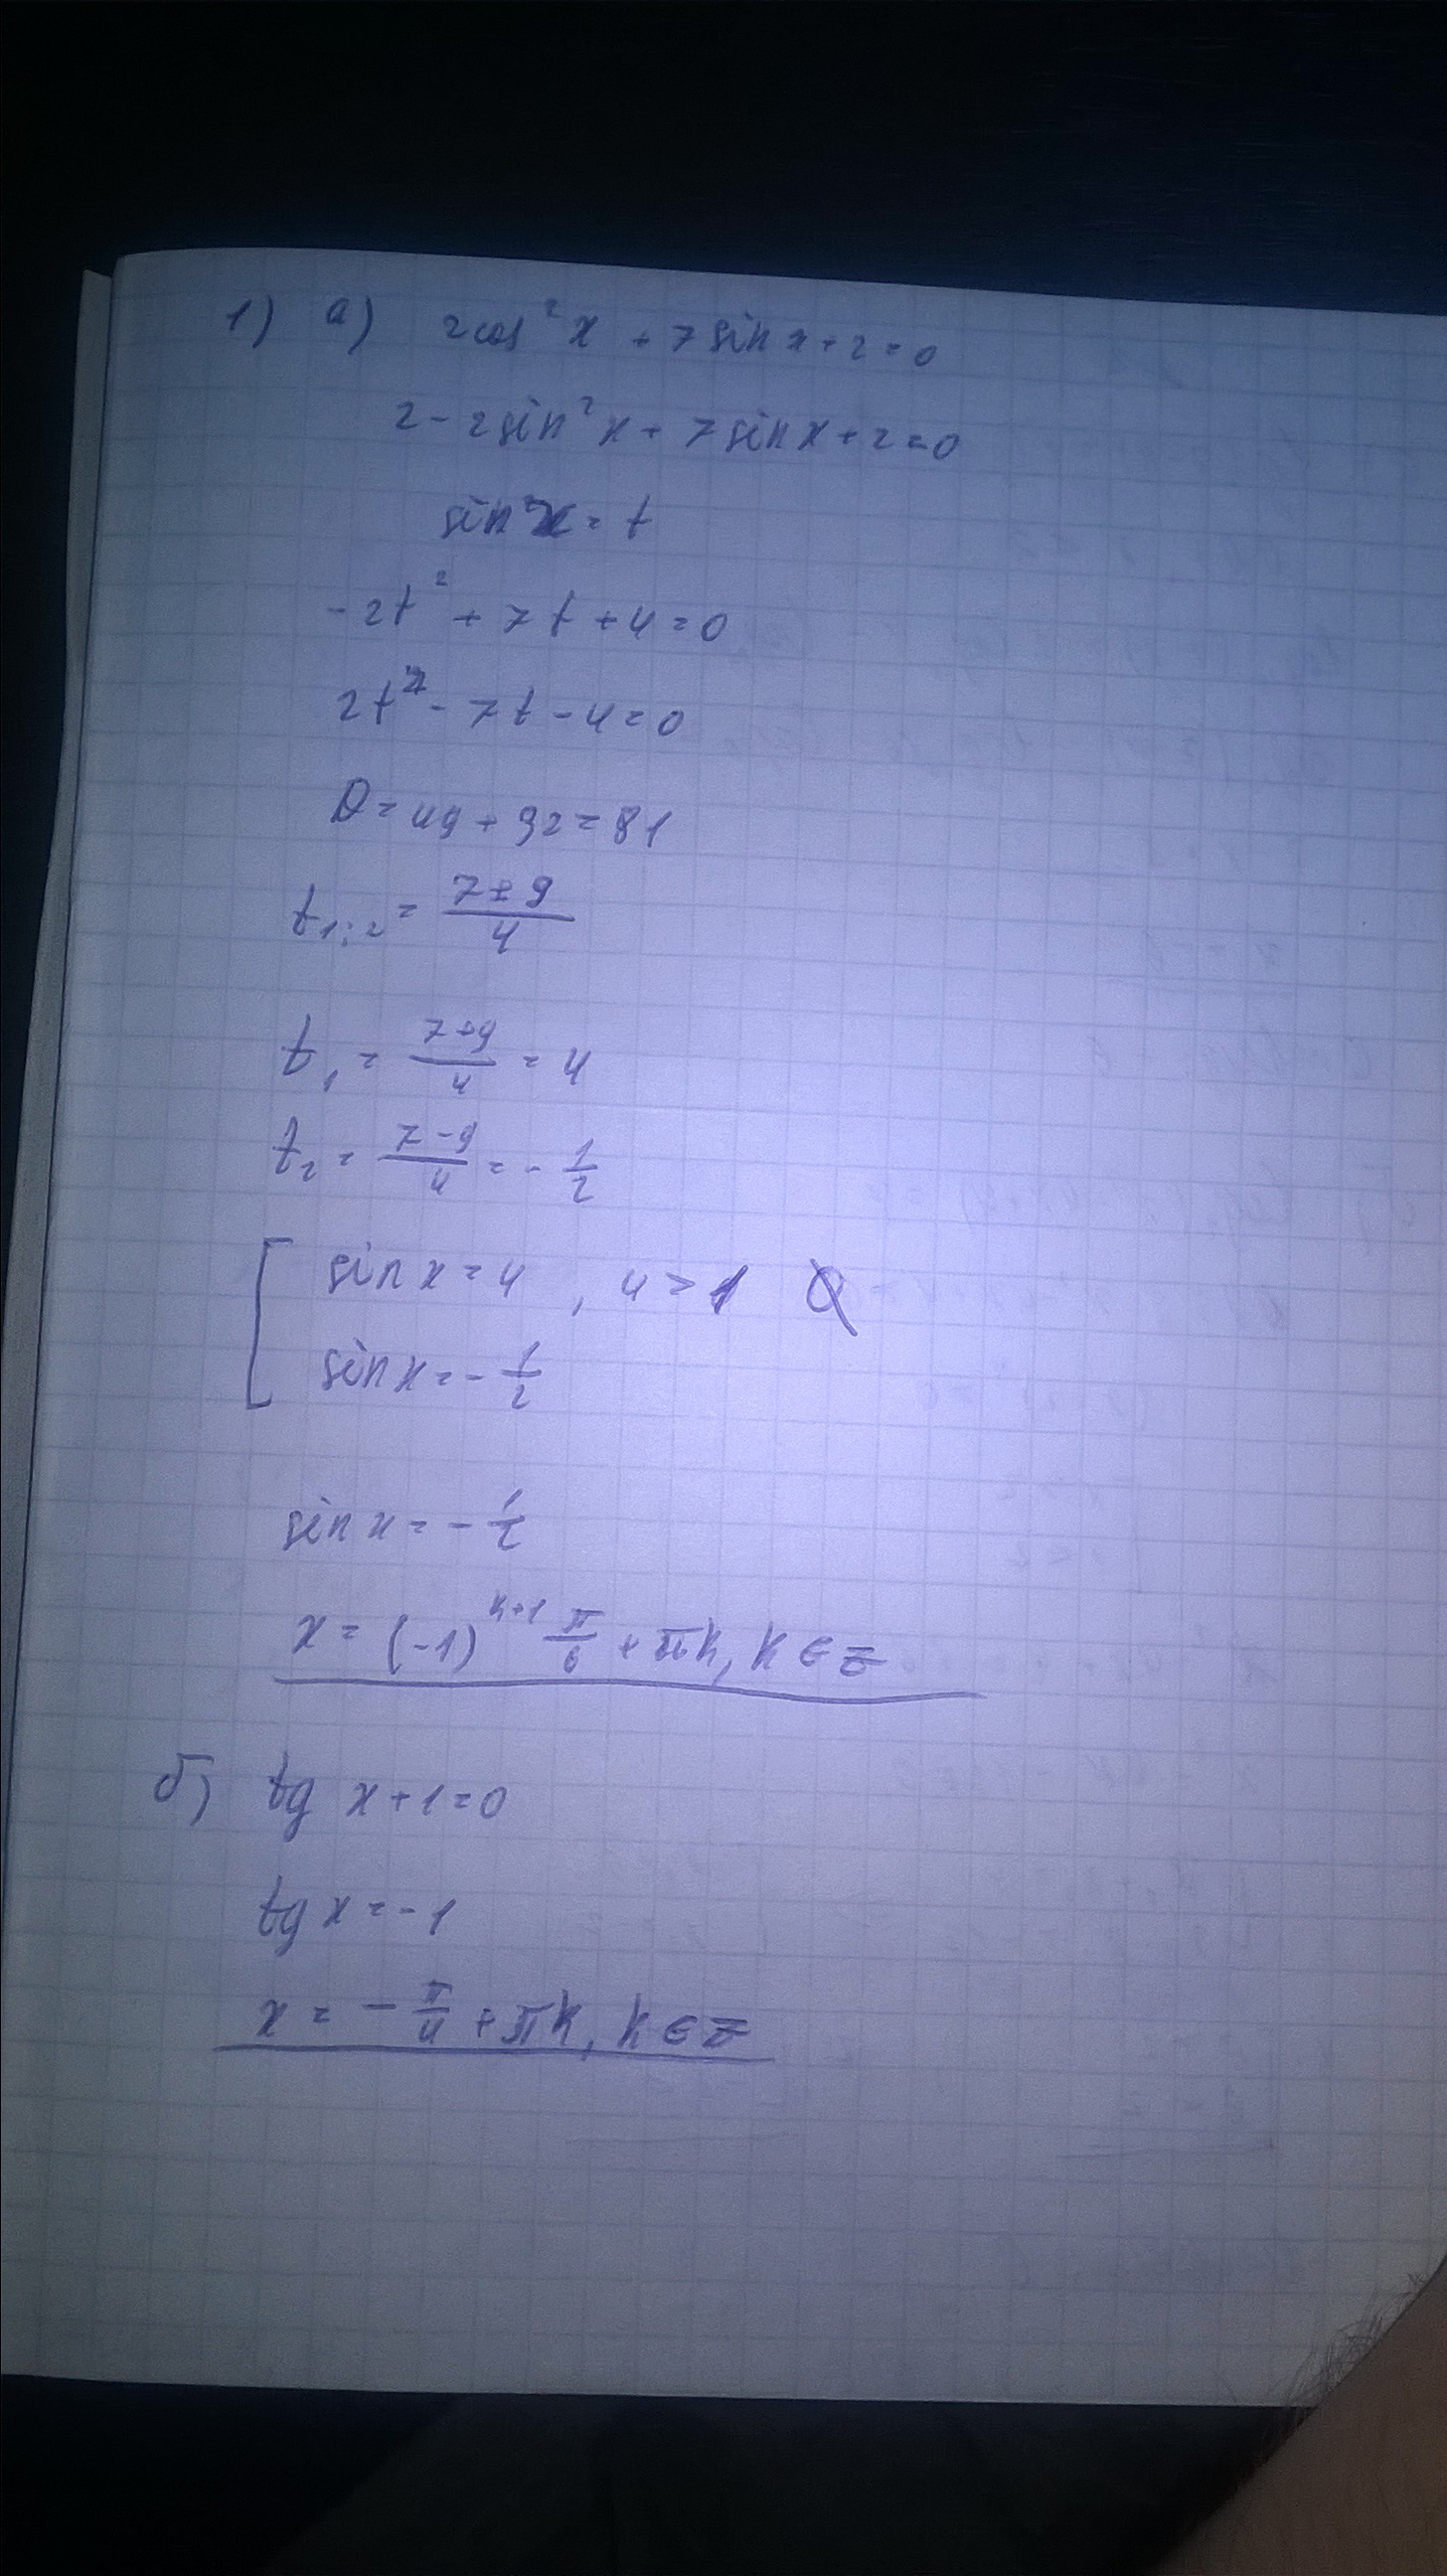 1) а) 2cos²x + 7sinx + 2 = 0
2 - 2sin²x + 7sinx + 2 = 0
sin x = t
-2t² + 7t + 4 = 0
2t² - 7t - 4 = 0
D = 49 + 32 = 81
t₁;₂ = (7 ± 9)/4
t₁ = (7+9)/4 = 4
t₂ = (7-9)/4 = -1/2
[ sin x = 4 , 4 > 1 ∅
sin x = -1/2
sin x = -1/2
x = (-1)^(k+1) π/6 + πk, k ∈ Z
б) tg x + 1 = 0
tg x = -1
x = -π/4 + πk, k ∈ Z